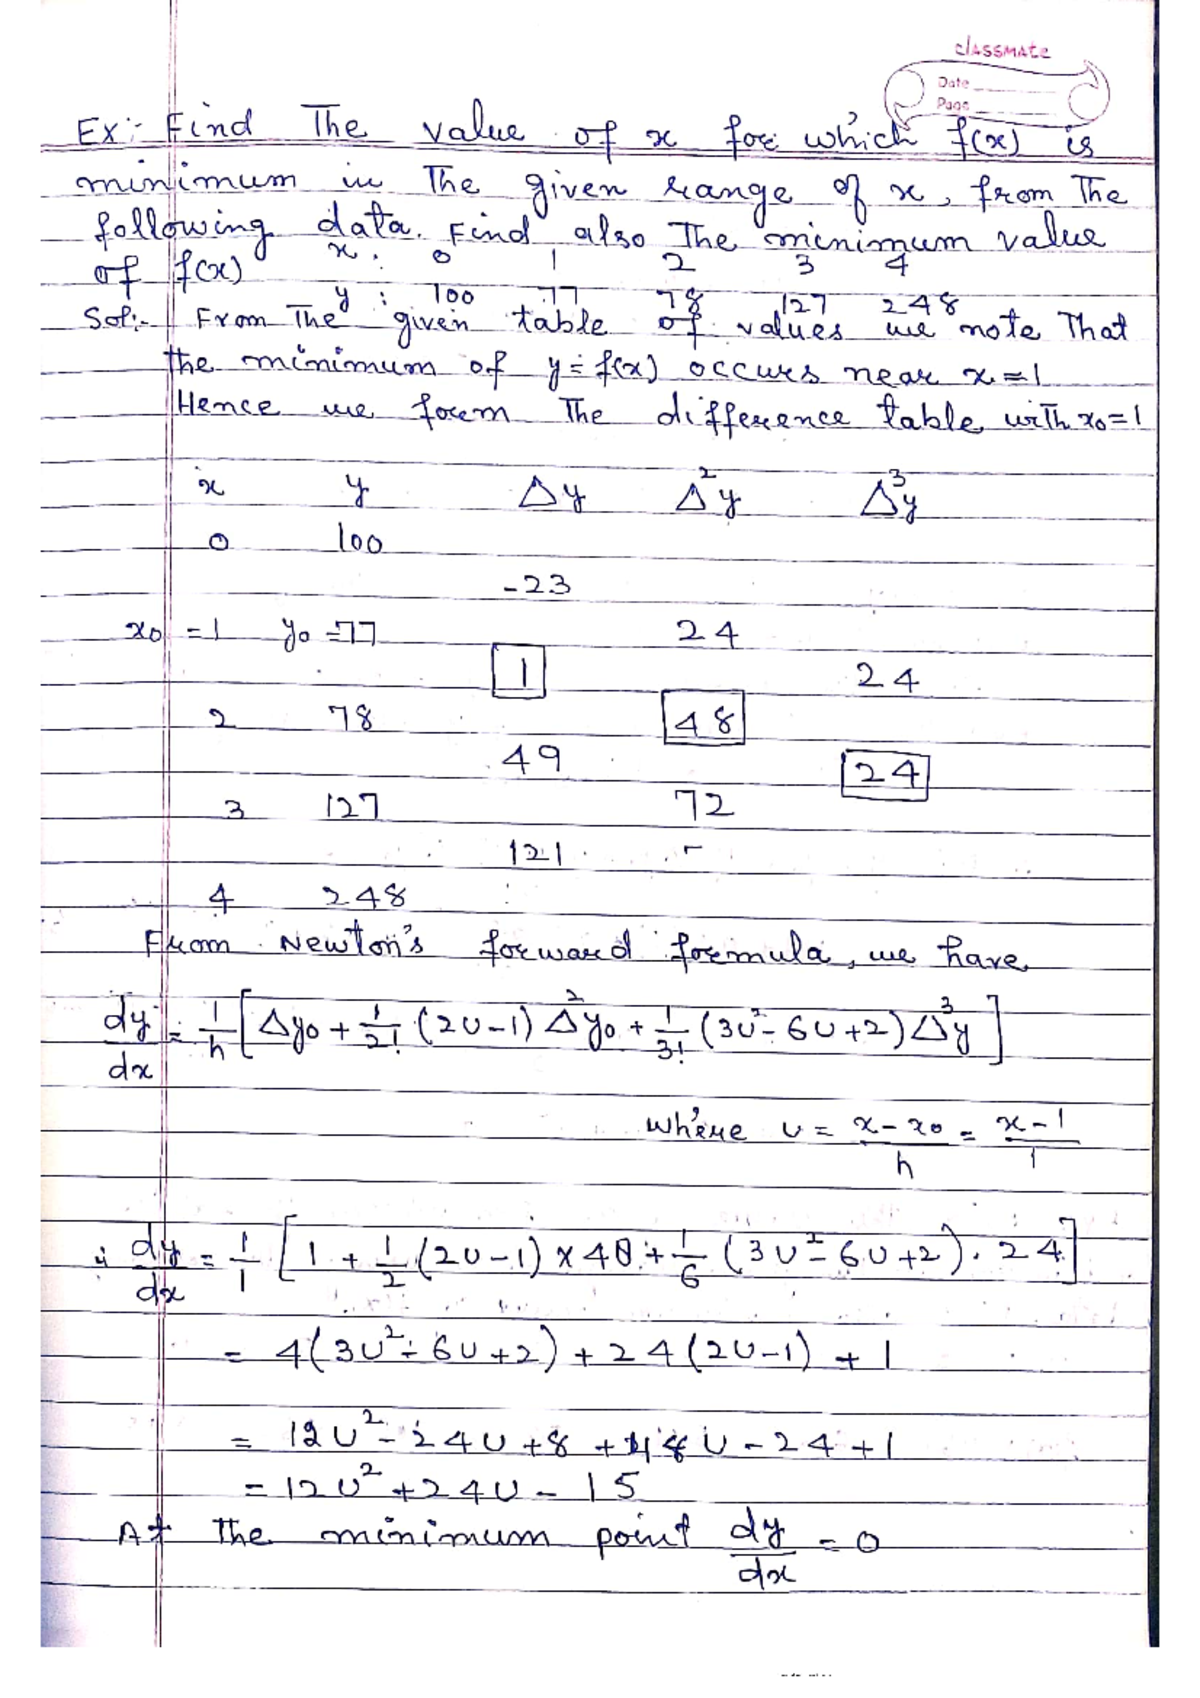 classmate
Date
Page
Ex:- Find The value of x for which f(x) is
minimum in The given range of x, from The
following data. Find also The minimum value
of f(x) x : 0 1 2 3 4
y : 100 77 78 127 248
Sol:- From The given table of values we note That
the minimum of y = f(x) occurs near x = 1
Hence we form The difference table with x0 = 1
x y Δy Δ²y Δ³y
0 100
-23
x0 = 1 y0 = 77 24
1 24
2 78 48
49 24
3 127 72
121
4 248
From Newton's forward formula, we have
dy/dx = 1/h [Δy0 + 1/2! (2u-1) Δ²y0 + 1/3! (3u²- 6u+2) Δ³y]
where u = x-x0/h = x-1/1
∴ dy/dx = 1/1 [1 + 1/2 (2u-1) × 48 + 1/6 (3u²- 6u+2) . 24]
= 4(3u²- 6u+2) + 24(2u-1) + 1
= 12u²- 24u +8 + 48u - 24 +1
= 12u² + 24u - 15
At The minimum point dy/dx = 0